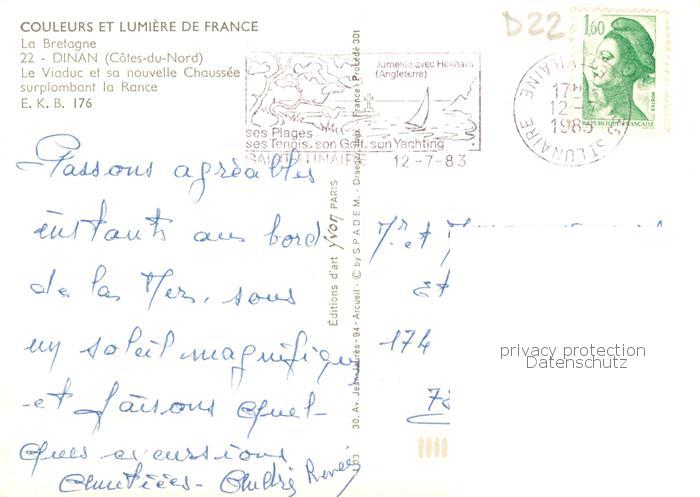 COULEURS ET LUMIÈRE DE FRANCE
La Bretagne
22 - DINAN (Côtes-du-Nord)
Le Viaduc et sa nouvelle Chaussée
surplombant la Rance
E. K. B. 176
D22
1,60
POSTES
REPUBLIQUE FRANÇAISE
Jumelée avec Hexham
(Angleterre)
ses Plages
ses Tennis, son Golf, son Yachting
SAINT LUNAIRE 12-7-83
ST LUNAIRE
VILAINE
17H
12-7
1983
Passons agréables
instants au bord
de la Mer, sous
un soleil magnifique
et faisons quel-
ques excursions
Amitiées - André Renée
Éditions d'art Yvon PARIS
30, Av. Jean-Jaurès - 94 - Arcueil - © by S.P.A.D.E.M. - Draeger, Imp. France - Procédé 301
Mr et
et
174
privacy protection
Datenschutz